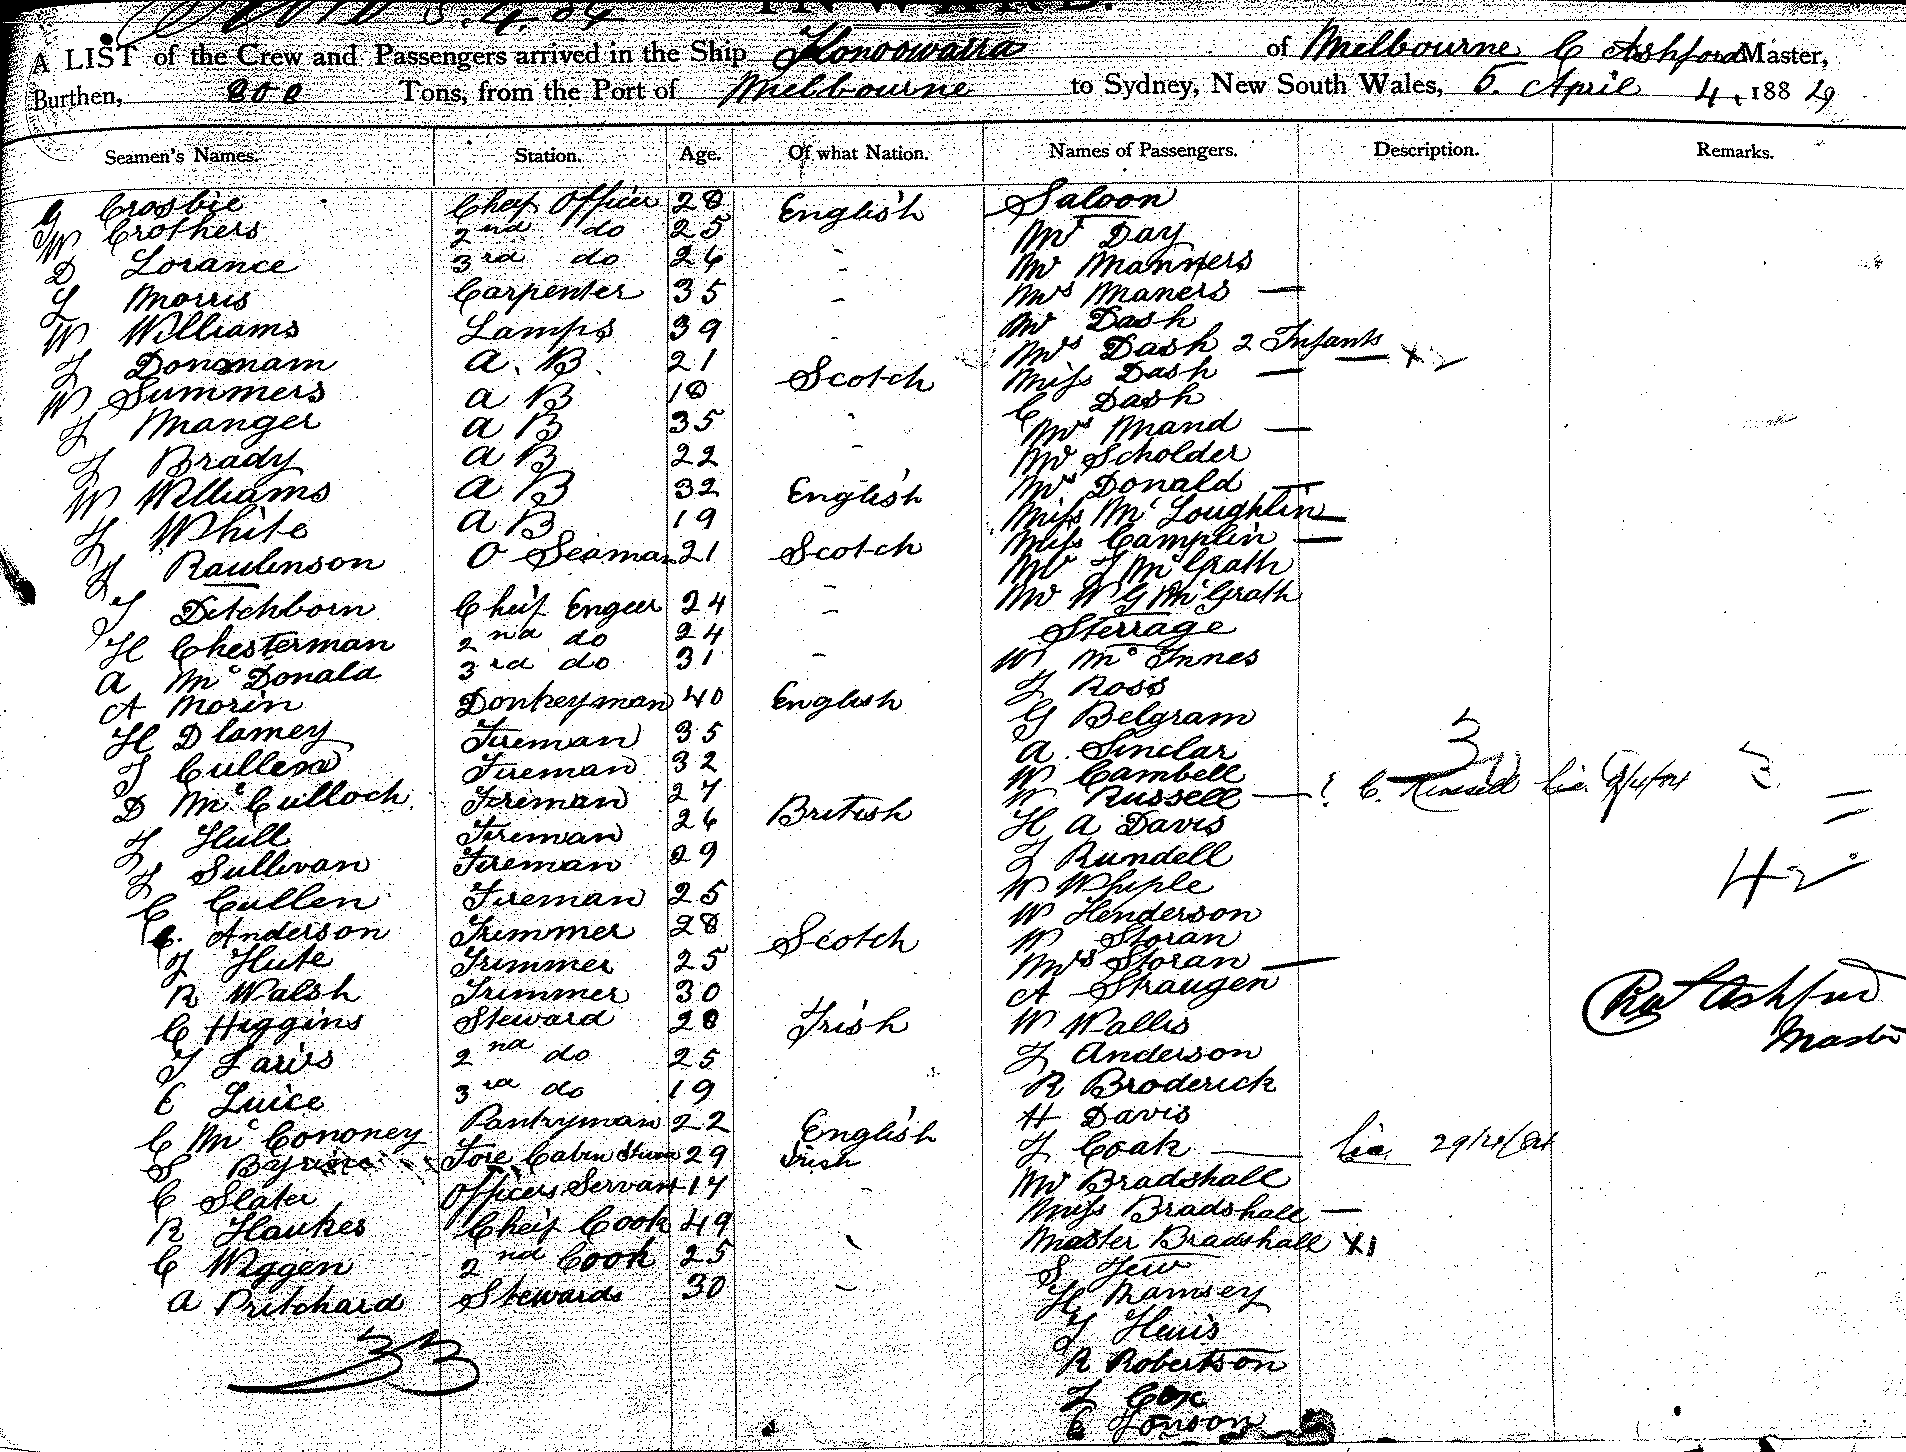 A LIST of the Crew and Passengers arrived in the Ship Konoowarra of Melbourne C Ashford Master,
Burthen, 800 Tons, from the Port of Melbourne to Sydney, New South Wales, 5. April 4, 188
Seamen's Names. Station. Age. Of what Nation. Names of Passengers. Description. Remarks.
G Crosbie Cheif Officer 28 English Saloon
W Crothers 2nd do 25 Mr Day
D Lorance 3rd do 26 Mr Manners
J Morris Carpenter 35 Mrs Maners
W Williams Lamps 39 Mr Dash
J Donomam A. B. 21 Scotch Mrs Dash 2 Infants
W Summers A B 18 Miss Dash
J Manger A B 35 C Dash
J Brady A B 22 Mrs Mand
W Williams A B 32 English Mr Scholder
J White A B 19 Mrs Donald
J Raulinson O Seaman 21 Scotch Miss Mc Loughlin
Miss Camplin
J Ditchborn Cheif Engeer 24 Mr J McGrath
H Chesterman 2nd do 24 Mr W G McGrath
A Mc Donald 3rd do 31 Sterrage
A Morin Donkeyman 40 English W Mc Innes
H Dlamey Fireman 35 J Ross
J Cullen Fireman 32 G Belgram
D Mc Culloch Fireman 27 British A Sinclar
J Hull Fireman 26 W Cambell
J Sullivan Fireman 29 W Russell C. Russell
C Cullen Fireman 25 H A Davis
C. Anderson Trimmer 28 Scotch J Rundell
J Hute Trimmer 25 W Whiple 42
R Walsh Trimmer 30 W Henderson
C Higgins Steward 28 Irish W Storan
J Laris 2nd do 25 Mrs Storan
E Luice 3rd do 19 A Straugen Ashford
C Mc Cononey Pantryman 22 English W Wallis Master
S Fore Cabin 29 Irish J Anderson
C Slater Officers Servant 17 R Broderick
R Haukes Cheif Cook 49 H Davis
C Wiggen 2nd Cook 25 J Coak
A Pritchard Stewards 30 Mr Bradshall
33 Miss Bradshall
Master Bradshall X1
S Jew
H Ramsey
J Huis
R Robertson
J Cox
C Jonson